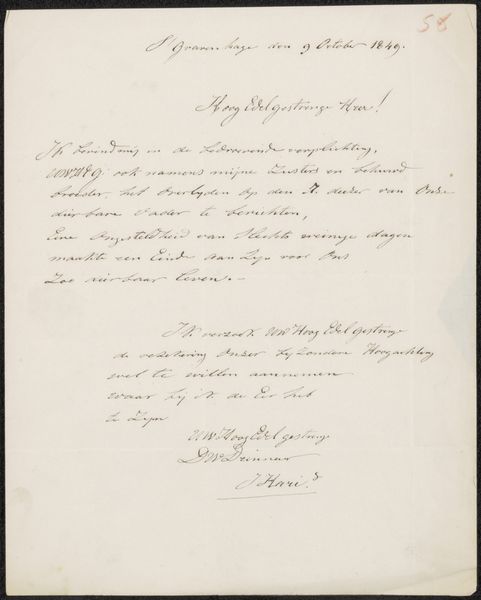 58
S'Gravenhage den 9 October 1849.
Hoog Edel gestrenge Heer!
Ik bevind mij in de bedroevende verpligting,
UWEdG ook namens mijne Zusters en behuwd
broeder, het overlyden op den 7. dezer van Onze
dierbare Vader te berichten,
Eene Ongesteldheid van slechts weinige dagen
maakte een Einde aan Zyn voor Ons
Zoo dierbaar leven.-
Ik verzoek UW Hoog Edel gestrenge
de verzekering Onzer byzondere Hoogachting
wel te willen aannemen
waar by ik de Eer heb
te Zyn
UW Hoog Edel gestrenge
DW Dienaar
J Hari